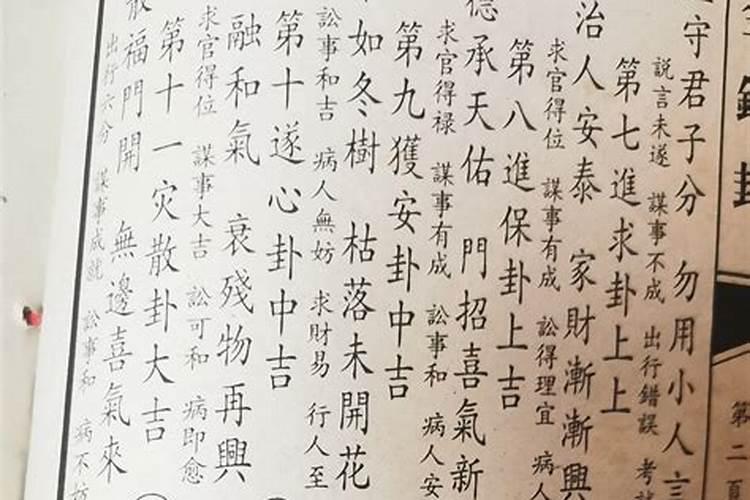 守君子分 勿用小人言
說言未遂 謀事不成 出行錯誤 考
第七進求卦上上
治人安泰 家財漸漸興
求官得位 謀事有成 訟得理宜 病人
第八進保卦上吉
德承天佑 門招喜氣新
求官得祿 謀事有成 訟事和 病人安
第九獲安卦中吉
如冬樹 枯落未開花
訟事和吉 病人無妨 求財易 行人至
第十遂心卦中吉
融和氣 衰殘物再興
求官得位 謀事大吉 訟可和 病即愈
第十一灾散卦大吉
散福門開 無邊喜氣來
出行六分 謀事成就 訟事和 病不妨
第二頁